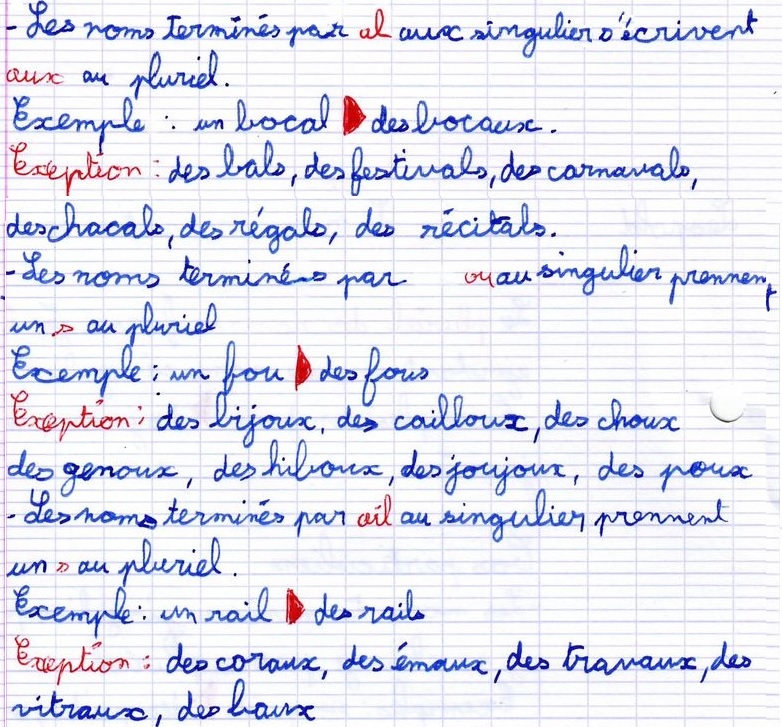 - Les noms terminés par al aux singulier s'écrivent
aux au pluriel.
Exemple : un bocal ▶ des bocaux.
Exeption : des bals, des festivals, des carnavals,
des chacals, des régals, des récitals.
- Les noms terminés par ou au singulier prennent
un s au pluriel
Exemple : un fou ▶ des fous
Exeption : des bijoux, des cailloux, des choux
des genoux, des hiboux, des joujoux, des poux
- Les noms terminés par ail au singulier prennent
un s au pluriel.
Exemple : un rail ▶ des rails
Exeption : des coraux, des émaux, des travaux, des
vitraux, des baux